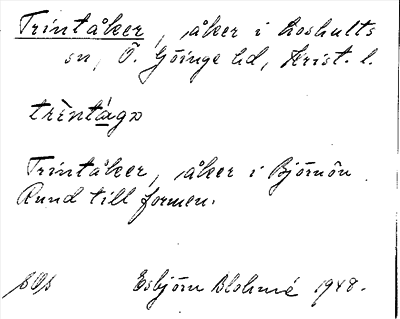 Trintåker, åker i Loshults
sn, Ö. Göinge hd, Krist. l.
Trintåker, åker i Björnön.
Rund till formen.
Esbjörn 1948.